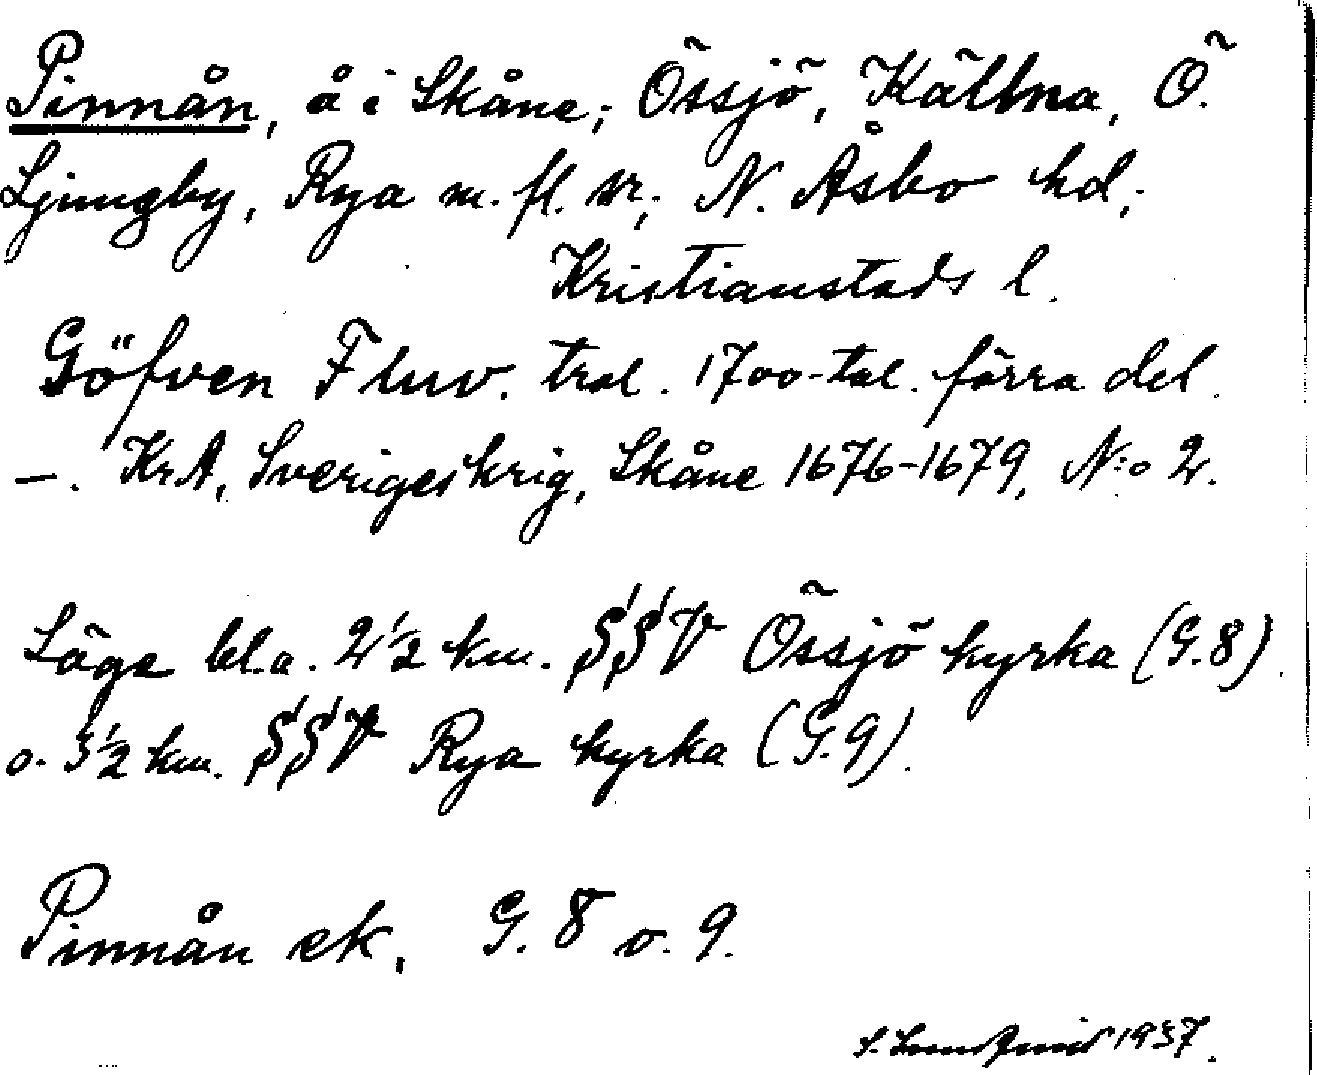 Pinnån, å i Skåne; Össjö, Källna, Ö.
Ljungby, Rya m. fl. snr; N. Åsbo hd;
Kristianstads l.
Göfven Fluv. trol. 1700-tal. förra del.
—. KrA, Sveriges krig, Skåne 1676-1679, N:o 2.
Läge bl.a. 2 1/2 km. SSV Össjö kyrka (G.8).
o. 3 1/2 km. SSV Rya kyrka (G.9).
Pinnån ek, G. 8 o. 9.
1937.